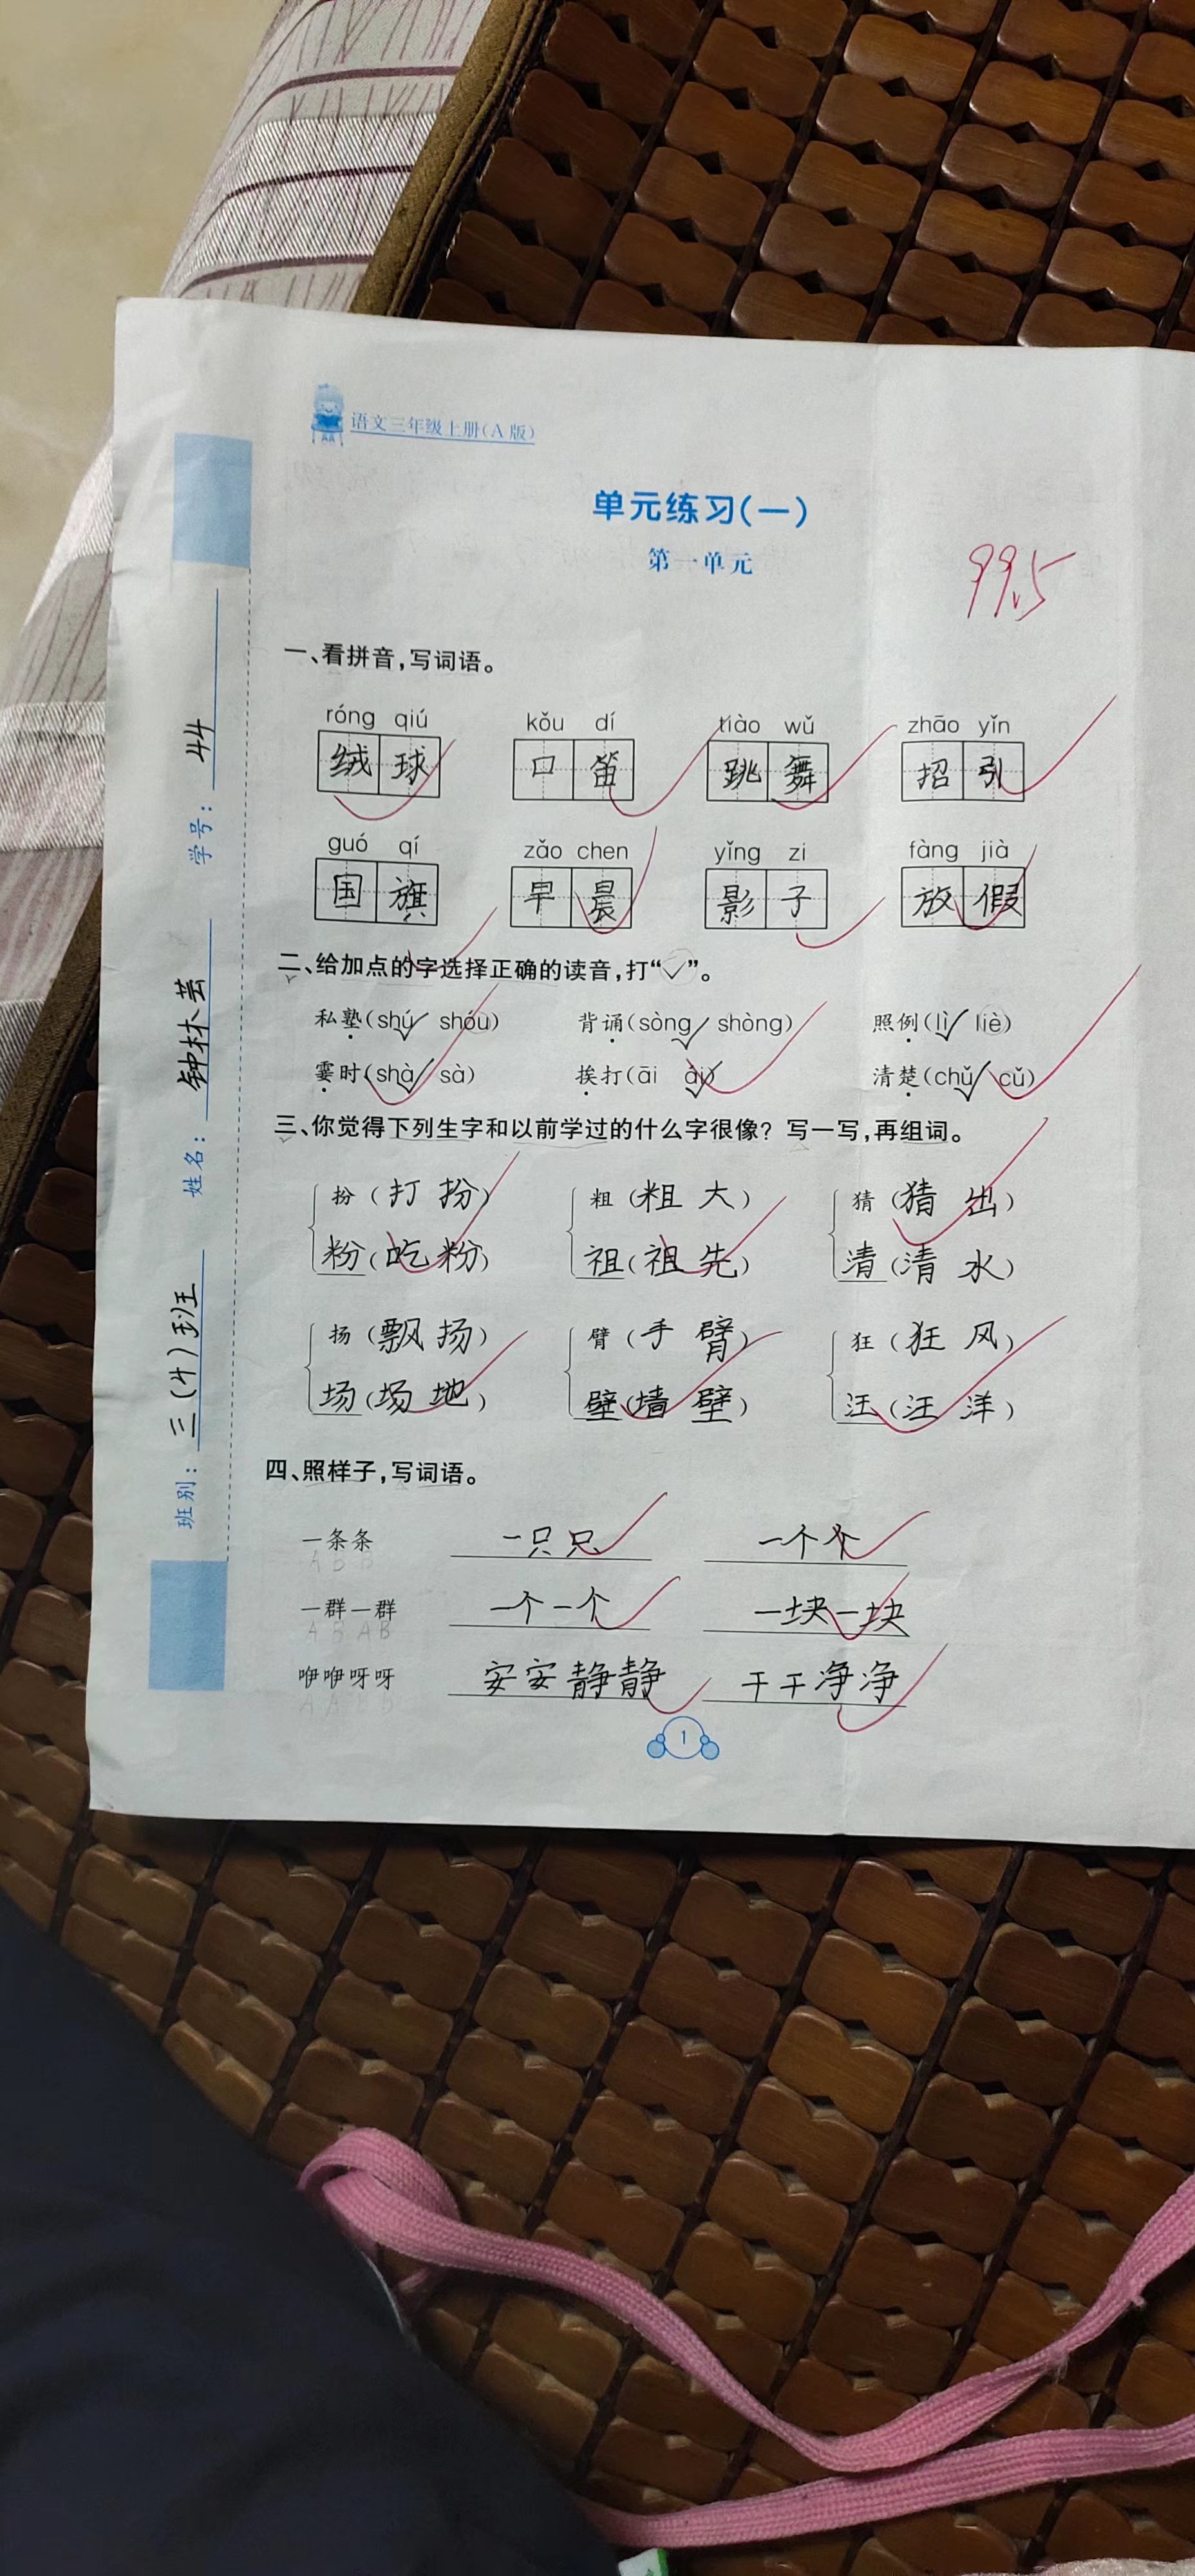 语文三年级上册(A版)
单元练习(一)
第一单元
99.5
一、看拼音,写词语。
róng qiú kǒu dí tiào wǔ zhāo yǐn
绒球 口笛 跳舞 招引
guó qí zǎo chen yǐng zi fàng jià
国旗 早晨 影子 放假
二、给加点的字选择正确的读音,打“✓”。
私塾(shú✓ shóu) 背诵(sòng✓ shòng) 照例(lì✓ liè)
霎时(shà✓ sà) 挨打(āi ái✓) 清楚(chǔ✓ cǔ)
三、你觉得下列生字和以前学过的什么字很像?写一写,再组词。
扮(打扮) 粗(粗大) 猜(猜出)
粉(吃粉) 祖(祖先) 清(清水)
扬(飘扬) 臂(手臂) 狂(狂风)
场(场地) 壁(墙壁) 汪(汪洋)
四、照样子,写词语。
一条条 一只只 一个个
ABB
一群一群 一个一个 一块一块
ABAB
咿咿呀呀 安安静静 干干净净
1
班别:三(4)班 姓名:钟林芸 学号:44